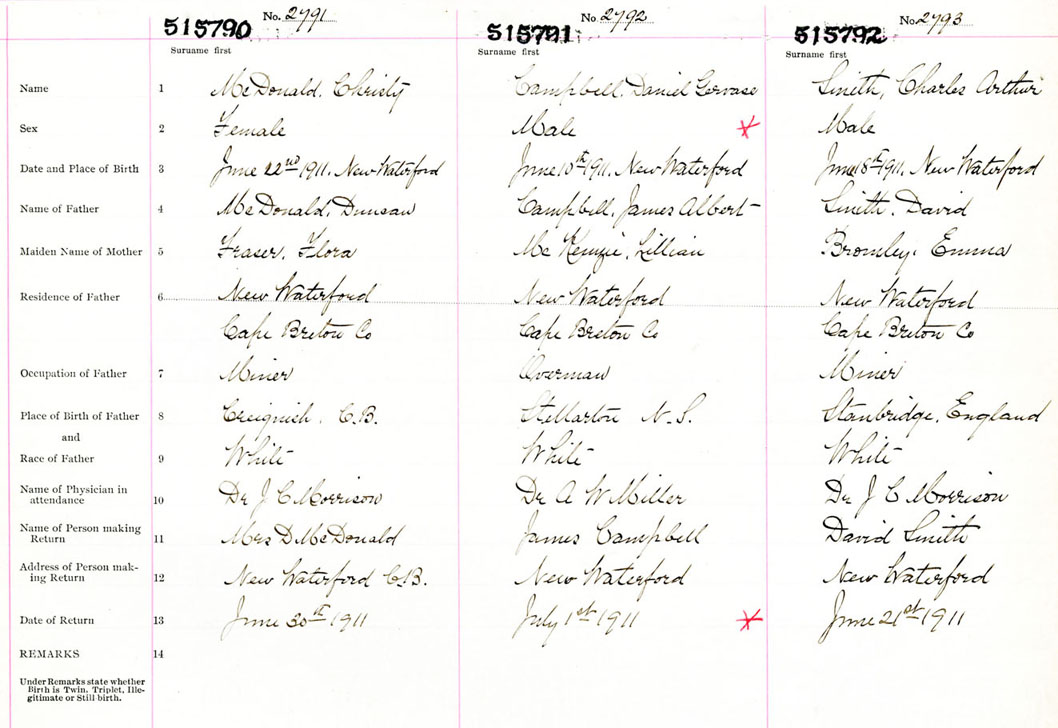 No. 2791 No. 2792 No. 2793
515790 515791 515792
Surname first Surname first Surname first
Name 1 McDonald, Christy Campbell, Daniel Gervase Smith, Charles Arthur
Sex 2 Female Male Male
Date and Place of Birth 3 June 22nd 1911, New Waterford June 10th 1911, New Waterford June 18th 1911, New Waterford
Name of Father 4 McDonald, Duncan Campbell, James Albert Smith, David
Maiden Name of Mother 5 Fraser, Flora McKenzie, Lillian Bromley, Emma
Residence of Father 6 New Waterford New Waterford New Waterford
Cape Breton Co Cape Breton Co Cape Breton Co
Occupation of Father 7 Miner Overman Miner
Place of Birth of Father 8 Creignish, C.B. Stellarton N.S. Stanbridge, England
and
Race of Father 9 White White White
Name of Physician in attendance 10 Dr J C Morrison Dr A W Miller Dr J C Morrison
Name of Person making Return 11 Mrs D McDonald James Campbell David Smith
Address of Person mak-
ing Return 12 New Waterford C.B. New Waterford New Waterford
Date of Return 13 June 30th 1911 July 1st 1911 June 21st 1911
REMARKS 14
Under Remarks state whether
Birth is Twin, Triplet, Ille-
gitimate or Still-birth.